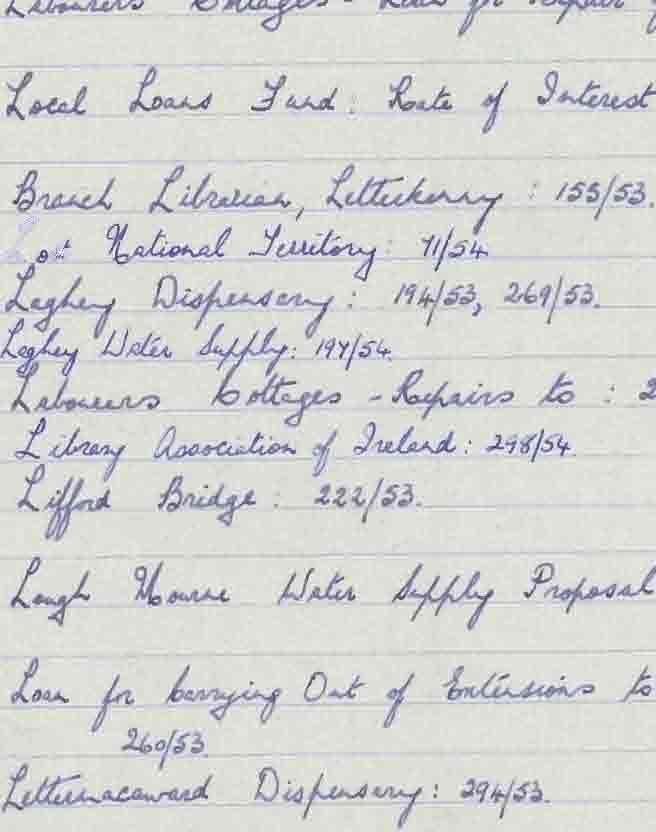 Labourers Cottages - Loan for Repair of
Local Loans Fund: Rate of Interest
Branch Librarian, Letterkenny: 153/53.
National Territory: 71/54
Laghey Dispensary: 194/53, 269/53.
Laghey Water Supply: 197/54.
Labourers Cottages - Repairs to: 2
Library Association of Ireland: 298/54.
Lifford Bridge: 222/53.
Lough Mourne Water Supply Proposal
Loan for Carrying Out of Extensions to
260/53.
Lettermacaward Dispensary: 294/53.